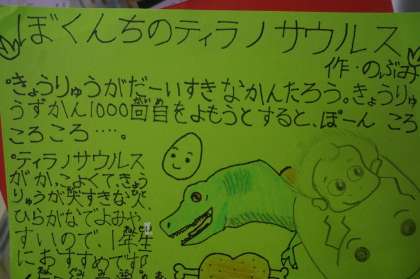 ぼくんちのティラノサウルス
作・のぶみ
きょうりゅうがだーいすきなかんたろう。きょうりゅ
うずかん1000回目をよもうとすると、ぼーん ころ
ころころ・・・・。
ティラノサウルス
がかっこよくてきょう
りゅうが大すきな人、
ひらがなでよみや
すいので、1年生
におすすめです